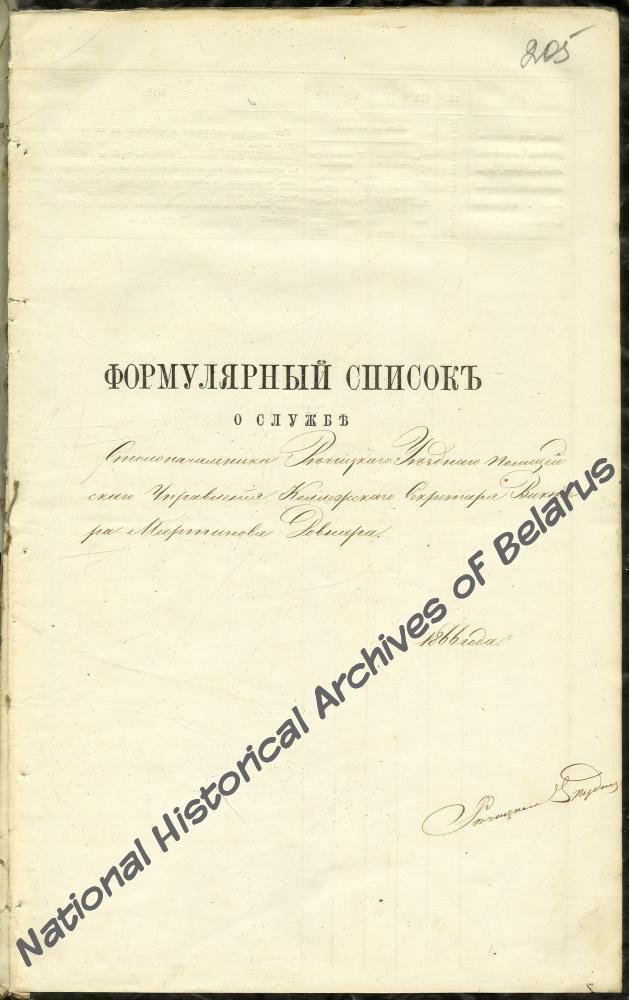 205
ФОРМУЛЯРНЫЙ СПИСОКЪ
О СЛУЖБѢ
Столоначальника Рѣчицкаго Уѣзднаго Полицей
скаго Управленія Коллежскаго Секретаря Викто
ра Мартинова Довнара.
1866 года
National Historical Archives of Belarus